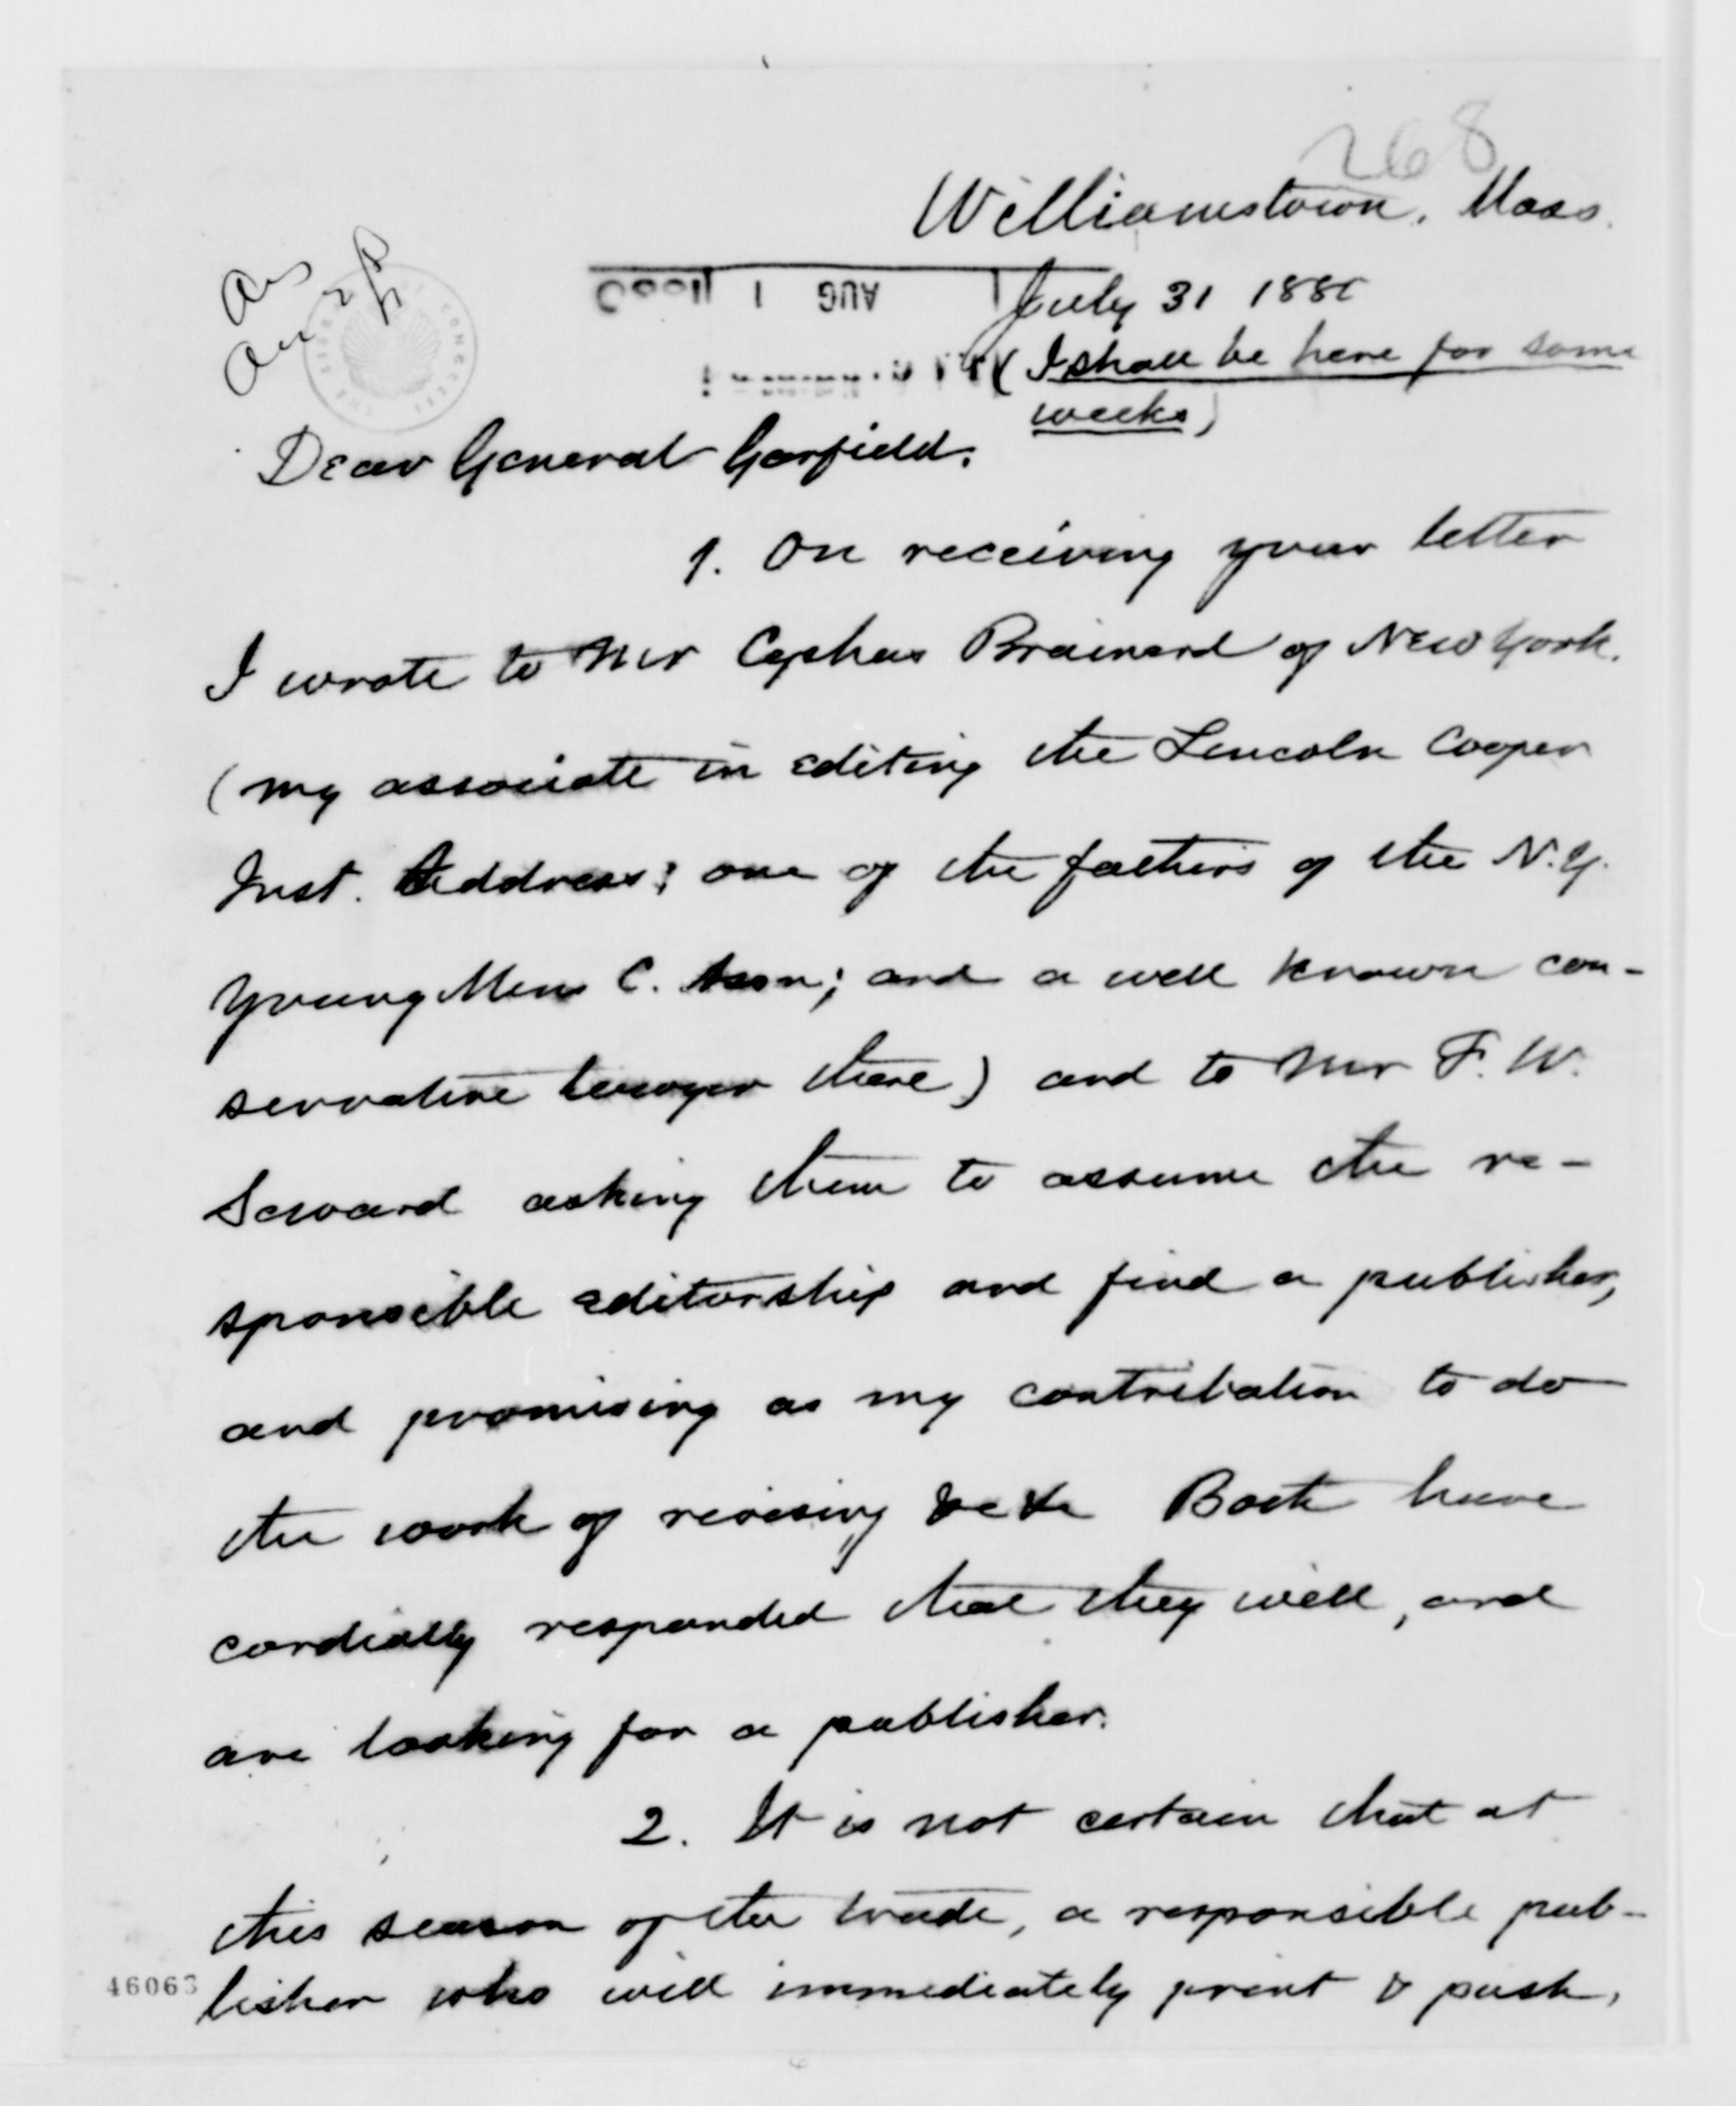 268
Williamstown, Mass.
Ans
Aug 2/80
AUG 1 1880
July 31 1880
(I shall be here for some
weeks)
Dear General Garfield.
1. On receiving your letter
I wrote to Mr Cephas Brainerd of New York.
(my associate in editing the Lincoln Cooper
Inst. Address; one of the fathers of the N.Y.
Young Mens C. Assn; and a well known con-
servative lawyer there) and to Mr F. W.
Seward asking them to assume the re-
sponsible editorship and find a publisher,
and promising as my contribution to do
the work of revising &c &c Both have
cordially responded that they will, and
are looking for a publisher.
2. It is not certain that at
this season of the trade, a responsible pub-
46063
lisher who will immediately print & push,